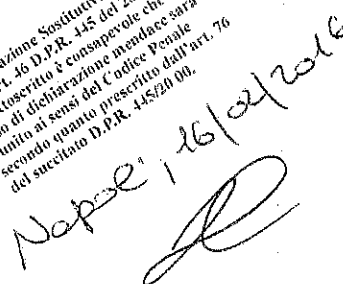 azione Sostitutiv
rt. 46 D.P.R. 445 del 20
ttoscritto è consapevole che
o di dichiarazione mendace sarà
unito ai sensi del Codice Penale
secondo quanto prescritto dall'art. 76
del succitato D.P.R. 445/20 00.
Napoli, 16/02/2016